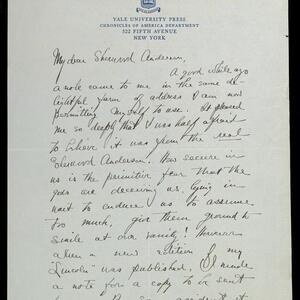 YALE UNIVERSITY PRESS
CHRONICLES OF AMERICA DEPARTMENT
522 FIFTH AVENUE
NEW YORK
My dear Sherwood Anderson,
A good while ago
a note came to me in the same de-
lightful form of address I am now
permitting myself to use. It pleased
me so deeply that I was half afraid
to believe it was from the real
Sherwood Anderson. How secure in
us is the primitive fear that the
gods are deceiving us, lying in
wait to induce us to assume
too much, give them ground to
smile at our vanity! However
when a new edition of my
"Lincoln" was published, I made
a note for a copy to be sent